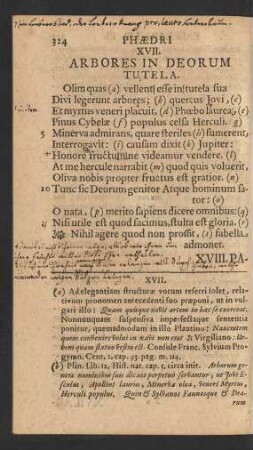 324 PHÆDRI
XVII.
ARBORES IN DEORUM
TUTELA.
Olim quas (a) vellent esse in tutela sua
Divi legerunt arbores; (b) quercus Jovi, (c)
Et myrtus veneri placuit, (d) Phœbo laurea, (e)
Pinus Cybelæ (f) populus celsa Herculi. (g)
5 Minerva admirans, quare steriles (h) sumerent,
Interrogavit: (i) causam dixit (k) Jupiter:
Honore fructum ne videamur vendere. (l)
At me hercule narrabit (m) quod quis voluerit,
Oliva nobis propter fructus est gratior. (n)
10 Tunc sic Deorum genitor Atque hominum sa-
tor: (o)
O nata, (p) merito sapiens dicere omnibus: (q)
Nisi utile est quod facimus, stulta est gloria. (r)
Nihil agere quod non prosit, (s) fabella
admonet.
XVIII. PA-
XVII.
(a) Ad elegantiam structuræ vocum referri solet, re-
lativum pronomen antecedenti suo præponi, ut in vul-
gari illo: Quam quisque norit artem in hac se exerceat.
Nonnunquam suspensiva imperfectaque sententia
ponitur, quemadmodum in illo Plautino: Naucratem
quem convenire volui in navi non erat & Virgiliano: Ur-
bem quam statuo vestra est. Consule Franc. Sylvium Pro-
gymn. Cent. 1. cap. 93. pag. m. 114.
(b) Plin. Lib. 12. Hist. nat. cap. 1. circa init. Arborum ge-
nera numinibus suis dicata perpetuo servantur; ut Jovi E-
sculus, Apollini laurus, Minervæ olea, Veneri Myrtus,
Herculi populus, Quin & Sylvanos Faunosque & Dea-
rum